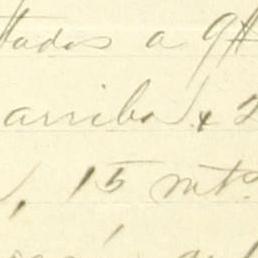 tados a 9#
arriba. x 2
, 15 mts.